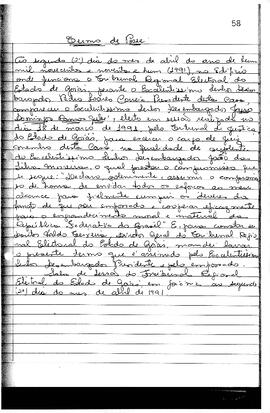 58
Termo de Posse
Ao segundo (2º) dia do mês de abril do ano de hum
mil novecentos e noventa e hum (1991), no Edifício
onde funciona o Tribunal Regional Eleitoral do
Estado de Goiás, perante o Excelentíssimo Senhor Desem-
bargador Presidente desta Casa,
compareceu o Excelentíssimo Senhor Desembargador
eleito em sessão realizada no
dia de março de 1991, pelo Tribunal de Justiça
do Estado de Goiás, para exercer o cargo de
desta Casa, na qualidade de
do Excelentíssimo Senhor Desembargador João da
Silva o qual prestou o compromisso que
se segue: "Declaro solenemente assumir o compromisso
de honra de envidar todos os esforços ao meu
alcance para fielmente cumprir os deveres da
função de que sou empossado e cooperar eficazmente
para o engrandecimento moral e material da
República Federativa do Brasil". E, para constar eu
Diretor Geral do Tribunal Regio
nal Eleitoral do Estado de Goiás, mandei lavrar
o presente termo que é assinado pelo Excelentíssimo
Senhor Desembargador Presidente e pelo empossado.
Sala de Sessões do Tribunal Regional
Eleitoral do Estado de Goiás, em Goiânia, ao segundo
(2º) dia do mês de abril de 1991.